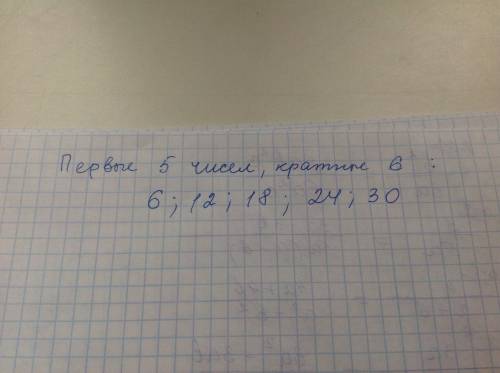 Первые 5 чисел, кратные 6 :
6; 12; 18; 24; 30